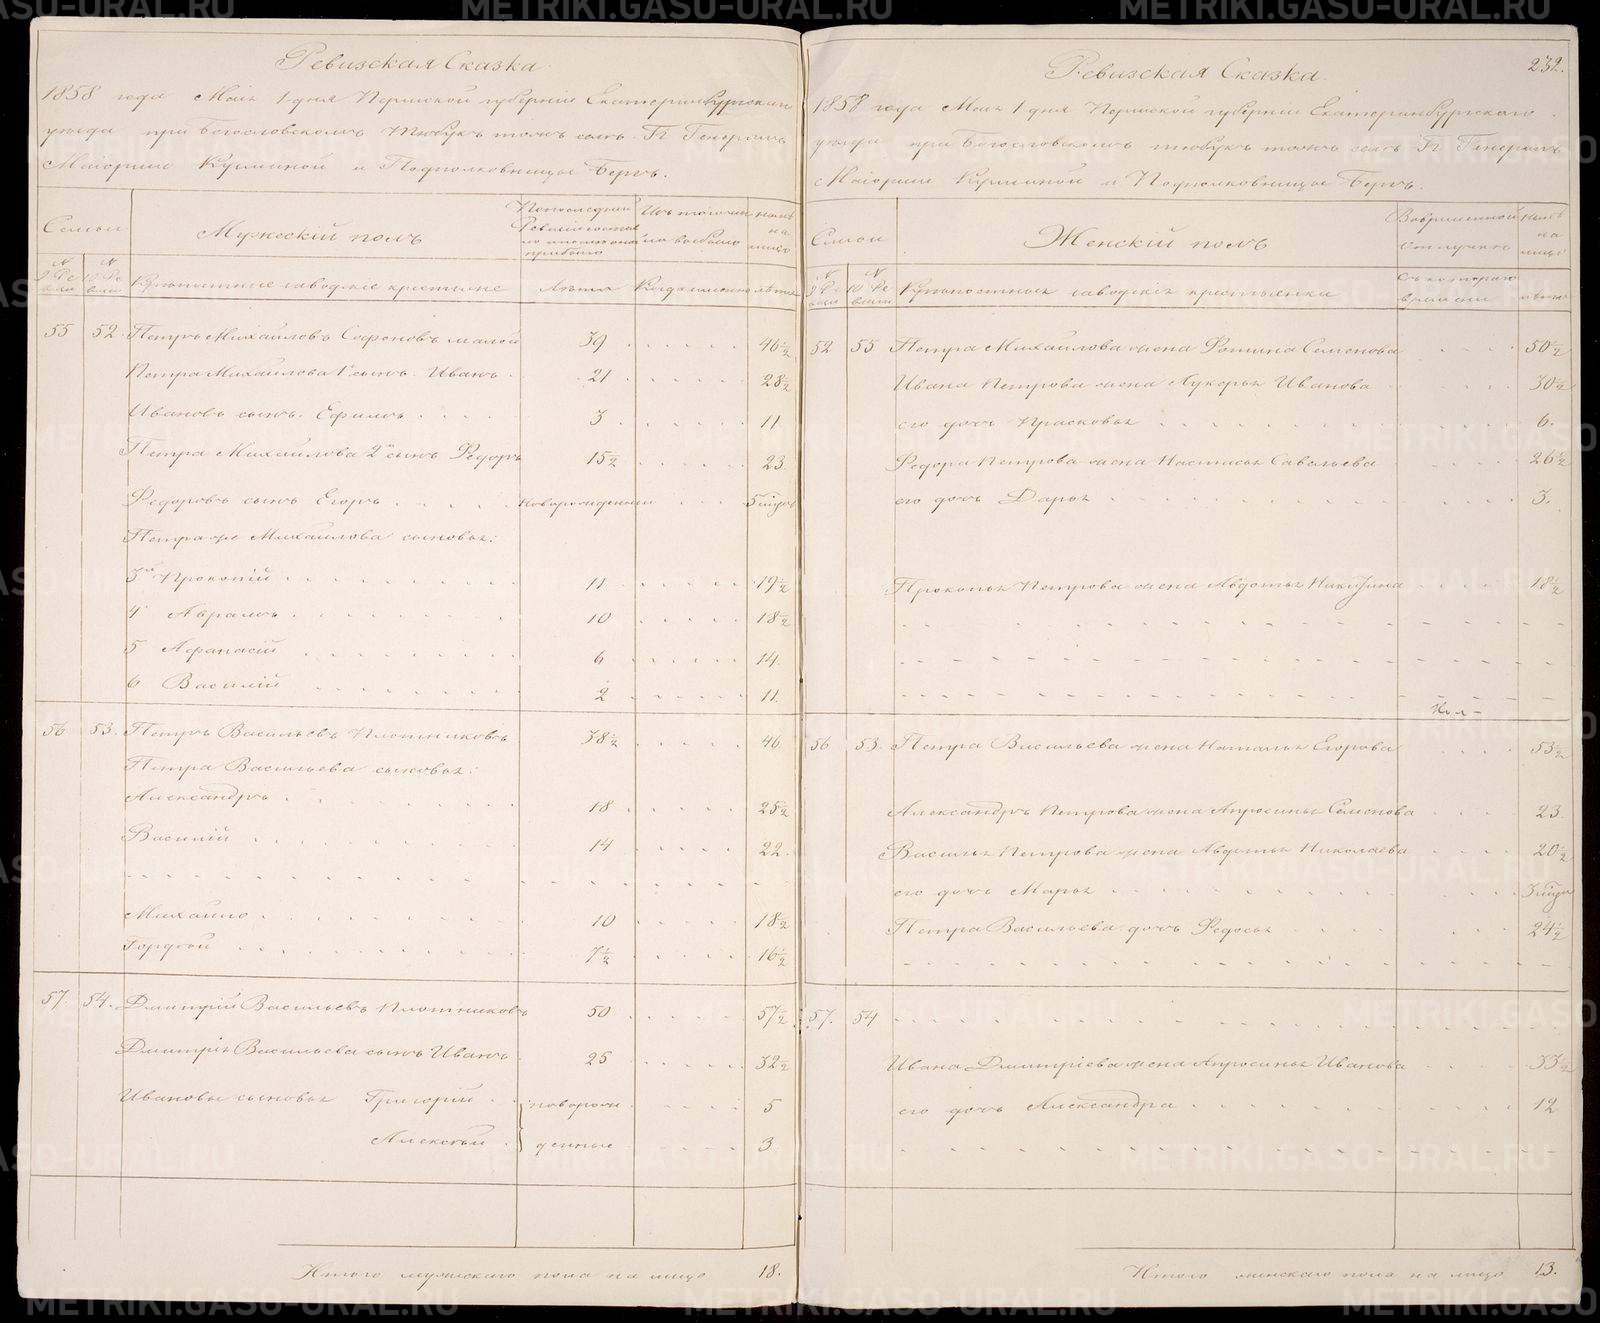 Ревизская Сказка.
1858 года Мая 1 дня Пермской губернiи Екатеринбургскаго
уезда при Богословскомъ Тюбукъ тожъ селѣ Гг. Генералъ
Маiорши Кузминой и Подполковницы Бергъ.
Семьи
Мужескiй полъ
По последней Ревизiи состояло и после оной прибыло
Изъ того числа выбыло
Ныне на лицо
№ 9 Ревизiи
№ 10 Ревизiи
Крѣпостные заводскiе крестьяне
Лѣта
Когда именно
лѣта
55 52. Петръ Михайловъ Софоновъ малой 39 46 1/2
Петра Михайлова 1й сынъ Иванъ 21 28 1/2
Ивановъ сынъ Ефимъ 3 11
Петра Михайлова 2й сынъ Федоръ 15 1/2 23
Федоровъ сынъ Егоръ новорожденный 5 мѣсц
Петра же Михайлова сыновья:
3й Прокопiй 11 19 1/2
4 Абрамъ 10 18 1/2
5 Афанасiй 6 14
6 Василiй 2 11
56 53. Петръ Васильевъ Плотниковъ 38 1/2 46
Петра Васильева сыновья:
Александръ 18 25 1/2
Василiй 14 22
Михайло 10 18 1/2
Гордѣй 7 1/2 16 1/2
57 54. Дмитрiй Васильевъ Плотниковъ 50 57 1/2
Дмитрiя Васильева сынъ Иванъ 25 32 1/2
Ивановы сыновья Григорiй новорож 5
Алексѣй денные 3
Итого мужескаго пола на лицо 18.
232.
Ревизская Сказка.
1858 года Мая 1 дня Пермской губернiи Екатеринбургскаго
уезда при Богословскомъ Тюбукъ тожъ селѣ Гг. Генералъ
Маiорши Кузминой и Подполковницы Бергъ.
Семьи
Женскiй полъ
Во временной отлучкѣ
Ныне на лицо
№ 9 Ревизiи
№ 10 Ревизiи
Крѣпостныя заводскiя крестьянки
Съ котораго времени
лѣта
52 55 Петра Михайлова жена Фотина Семенова 50 1/2
Ивана Петрова жена Лукерья Иванова 30 1/2
его дочь Прасковья 6.
Федора Петрова жена Настасья Савельева 26 1/2
его дочь Дарья 3.
Прокопья Петрова жена Авдотья Никитина 18 1/2
56 53. Петра Васильева жена Наталья Егорова 53 1/2
Александръ Петрова жена Апросинья Семенова 23
Василья Петрова жена Авдотья Николаева 20 1/2
его дочь Марья 3 мѣсц
Петра Васильева дочь Федосья 24 1/2
57. 54
Ивана Дмитрiева жена Апросинья Иванова 33 1/2
его дочь Александра 12
Итого женскаго пола на лицо 13.
METRIKI.GASO-URAL.RU